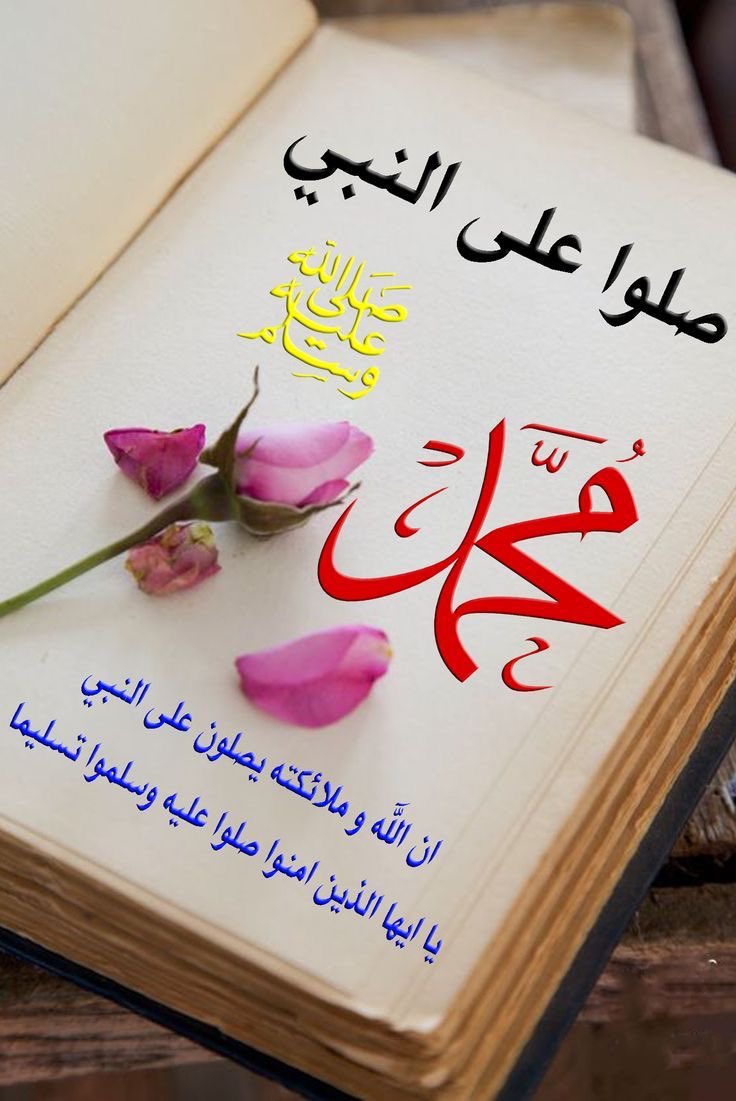 صلوا على النبي
صلى الله
عليه
وسلم
مُحَمَّد
ان الله و ملائكته يصلون على النبي
يا ايها الذين امنوا صلوا عليه وسلموا تسليما